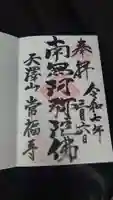 奉拝
令和七年
南無阿弥陀佛
天澤山 常福寺